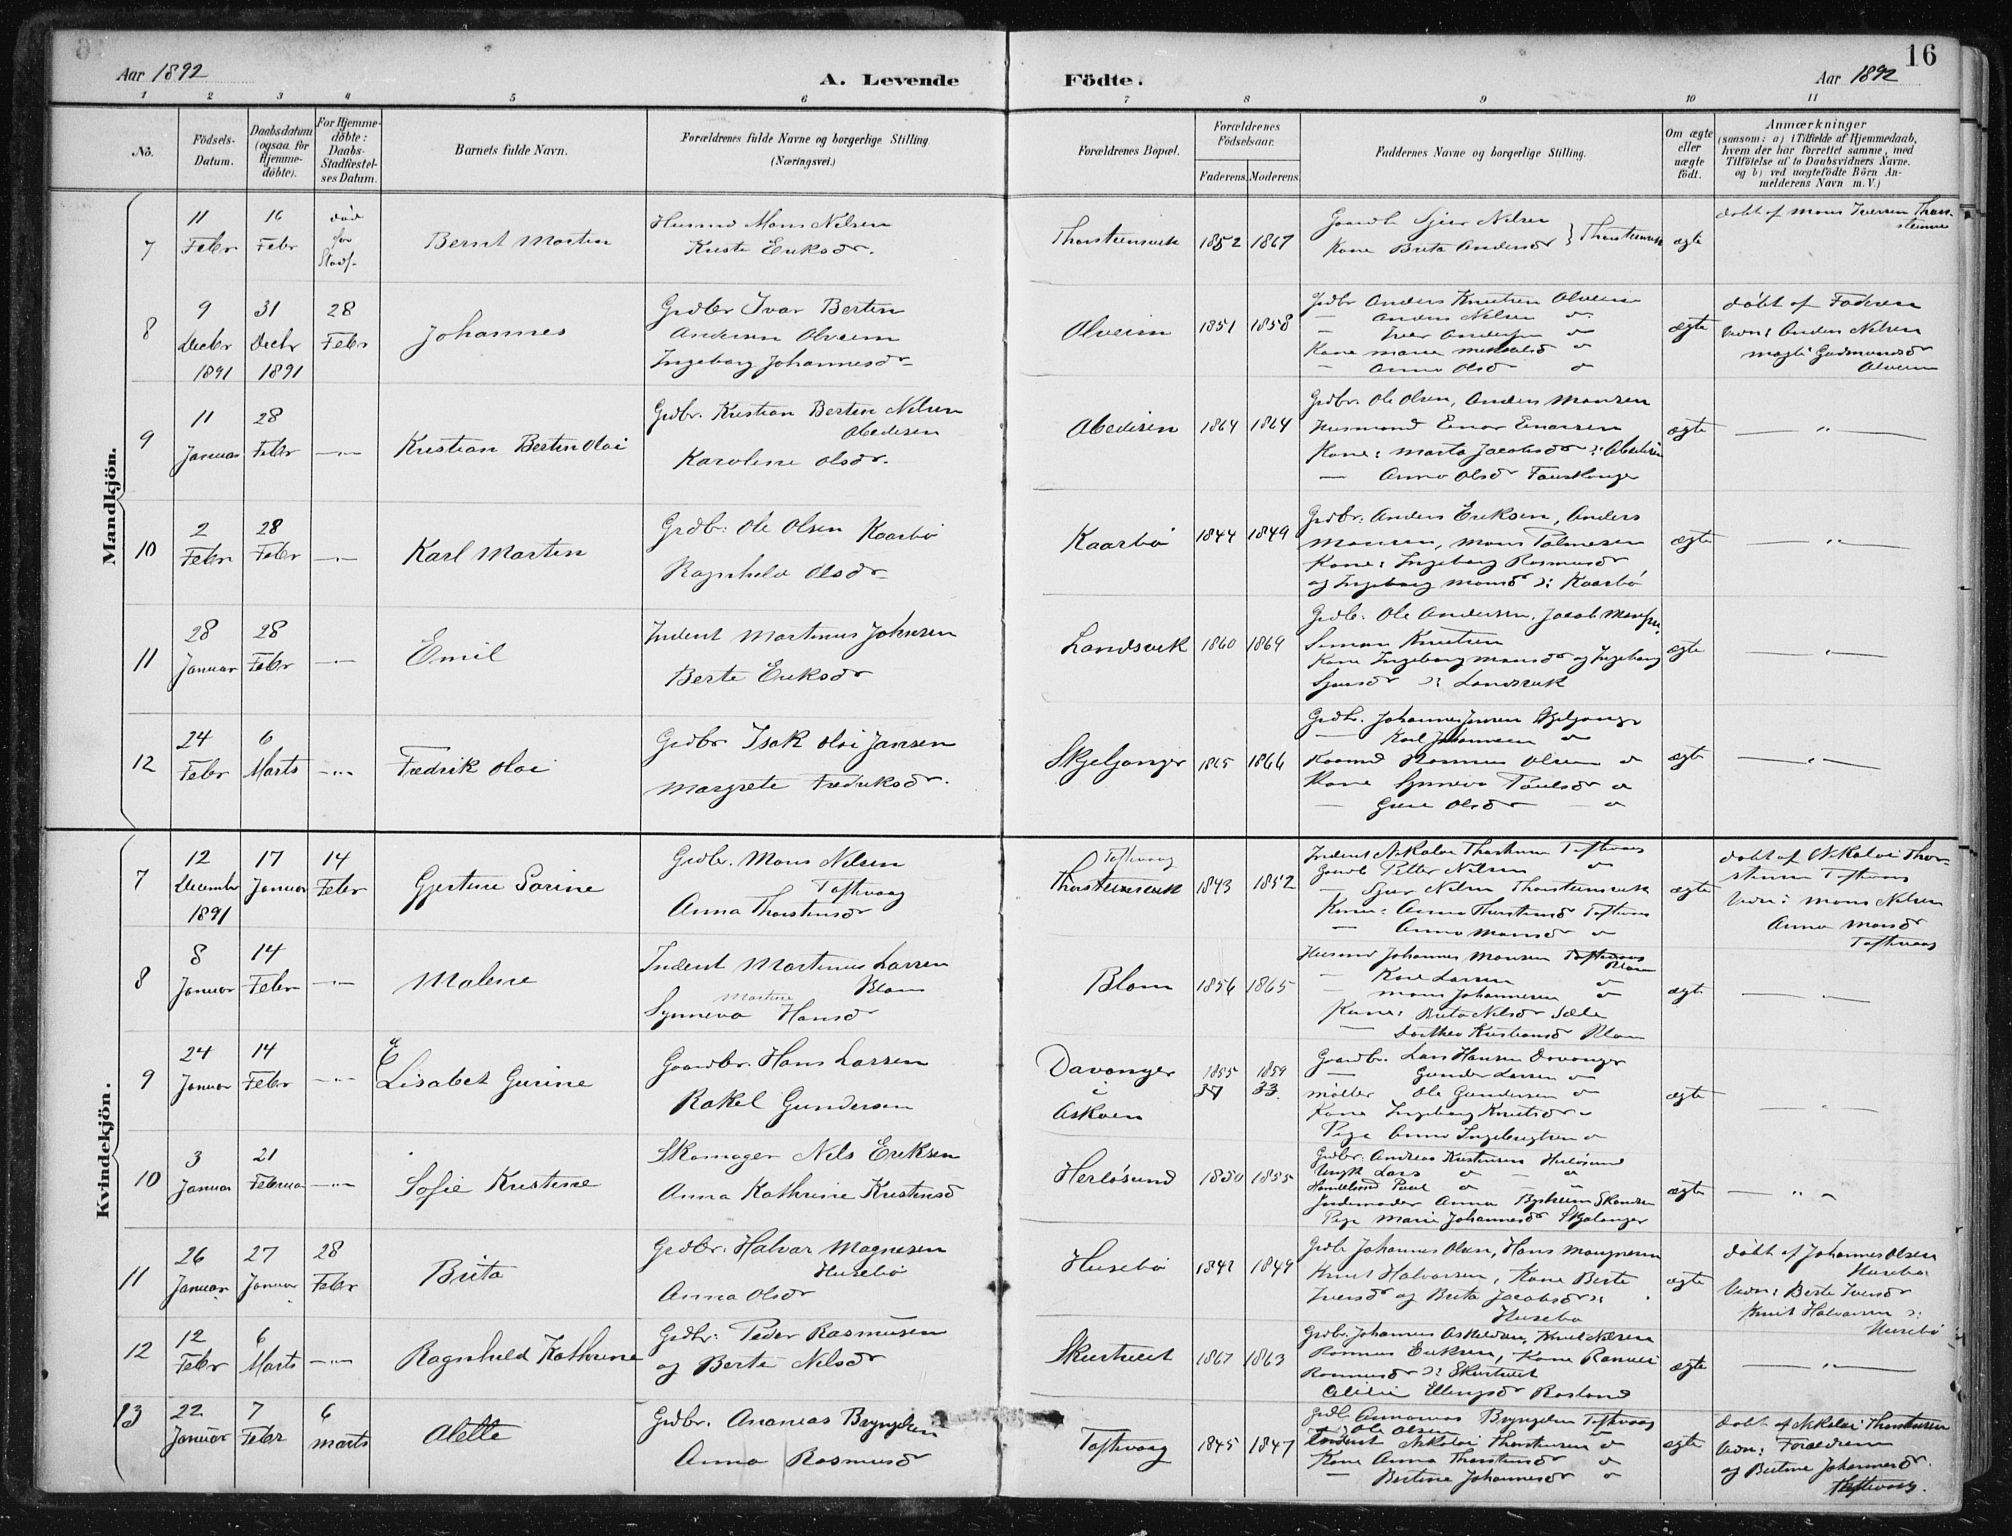 16
Aar 1892
A. Levende
Födte.
Aar 1892
1 2 3 4 5 6 7 8 9 10 11
No.
Födsels-
Datum.
Daabsdatum
(ogsaa for
Hjemme-
døbte).
For Hjemme-
døbte:
Daabs-
Stadfæstel-
ses Datum.
Barnets fulde Navn.
Forældrenes fulde Navne og borgerlige Stilling
(Næringsvei.)
Forældrenes Bopæl.
Forældrenes
Födselsaar.
Faderens. Moderens.
Faddernes Navne og borgerlige Stilling.
Om ægte
eller
uægte
födt.
Anmærkninger
(saasom: a) i Tilfælde af Hjemmedaab,
hvem der har forrettet samme, med
Tilföielse af to Daabsvidners Navne.
og b) ved uægtefödte Börn An-
melderens Navn m. V.)
Mandkjön.
7
11
Febr
16
Febr
død
før
Stadf.
Bernt Martin
Husmd Mons Nilsen
Kriste Eriksdr.
Thorsteinsvik
1852 1867
Gaardb Sjur Nilsen
Kone Brita Andersdr } Thorsteinsvik
ægte
døbt af Mons Iversen Thor-
steinsv
8
9
Decbr
1891
31
Decbr
1891
28
Febr
Johannes
Grdbr Ivar Bertin
Andersen Olveim
Ingeborg Johannesdr
Olveim
1851 1858
Grdbr Anders Knutsen Olveim
— Anders Nilsen do
— Iver Andersen do
Kone Marie do
— Anna Olsdr do
ægte
døbt af Faderen
Vidn: Anders Nilsen
Magli Gudmundsdr
Olveim
9
11
Januar
28
Febr
—"—
Kristian Bertin Olai
Grdbr. Kristian Bertin Nilsen
Abedisen
Karoline Olsdr.
Abedisen
1864 1864
Grdbr. Ole Olsen, Anders Monsen
Husmand Einar Einarsen
Kone: Marta Jacobsdr ɔ: Abedisen
— Anna Olsdr Fauskanger
ægte
— " —
10
2
Febr
28
Febr
—"—
Karl Martin
Grdbr: Ole Olsen Kaarbø
Ragnhild Olsdr
Kaarbø
1844 1849
Grdbr: Anders Eriksen, Anders
Monsen, Mons Palmesen
Kone: Ingeborg Rasmusdr
og Ingeborg Monsdr ɔ: Kaarbø
ægte
— " —
11
28
Januar
28
Febr
—"—
Emil
Inderst Martinus Johnsen
Berte Eriksdr
Landsvik
1860 1869
Grdbr: Ole Andersen, Jacob Monsen,
Simon Knutsen
Kone Ingeborg Monsdr og Ingeborg
Sjursdr ɔ: Landsvik
ægte
— " —
12
24
Febr
6
Marts
—"—
Fredrik Olai
Grdbr Isak Olai Jansen
Margrete Fredriksdr.
Skjelanger
1865 1866
Grdbr. Johannes Jansen Skjelanger
— Karl Johannesen do
Kaarmd Rasmus Olsen do
Kone Synneva Poulsdr do
— Guri Olsdr — do
ægte
— " —
Kvindekjön.
7
12
December
1891
17
Januar
14
Febr
Gjertine Sorine
Grdbr. Mons Nilsen
Toftvaag
Anna Thorstinsdr
Toftvaag
Thorsteinsvik
1843 1852
Inderst Nikolai Thorstinsen Toftvaag
Gaardb Petter Nilsen do
— Sjur Nilsen Thorsteinsvik
Kone: Anna Thorstinsdr Toftvaag
— Anna Monsdr do
ægte
døbt af Nikolai Thor-
stinsen Toftvaag
Vidn: Mons Nilsen
Anna Monsdr
Toftvaag
8
8
Januar
14
Febr
—"—
Malene
Inderst Martinus Larsen
Blom
Martine
Synneva Hansdr
Blom
1856 1865
Husmd Johannes Monsen Toftvaag
Blom
— Karl Larsen do
— Mons Johannesen do
Kone: Brita Nilsdr Sæle
— Dorthea Kristiansdr Blom
ægte
— " —
9
24
Januar
14
Febr
—"—
E
Lisabet Gurine
Gaardbr. Hans Larsen
Rakel Gundersen
Davanger
i
Askøen
1855 1859
37 33.
Gaardbr. Lars Hansen Davanger
— Gunder Larsen do
Møller Ole Gundersen do
Kone Ingeborg Knutsdr do
Pige Anna Ingebrigtsen do
ægte
"
10
3
Januar
21
Februar
—"—
Sofie Kristine
Skomager Nils Eriksen
Anna Kathrine Kristensd
Herløsund
1850 1855
Grdbr. Andreas Kristensen Herløsund
Ungk Lars do — do
Handelsmd Paul do — do
Jordemoder Anna Skandsen
Pige Marie Johannesdr Skjelanger
ægte
— " —
11
26
Januar
27
Januar
28
Febr
Brita
Grdbr. Halvar Magnesen
Husebø
Anna Olsdr
Husebø
1842 1849
Grdb Johannes Olsen, Hans Mangnesen
Knut Halvorsen, Kone Berte
Iversdr og Brita Jacobsdr ɔ:
Husebø
ægte
døbt af Johannes Olsen
Husebø
Vidn: Berte Iversdr
Knut Halvorsen ɔ:
Husebø
12
12
Febr
6
Marts
—"—
Ragnhild Kathrine
Grdbr: Peder Rasmusen
og Berte Nilsdr
Skurtveit
1867 1863
Grdbr. Johannes Askildsen, Knut Nilsen
Rasmus Eriksen, Kone Ranvei
Rasmusdr ɔ: Skurtveit
Ellingsdr Rosland
ægte
— " —
13
22
Januar
7
Febr
6
Marts
Alette
Grdbr. Ananias Bryngelsen
Anna Rasmusdr
Toftvaag
1845 1847
Grdb. Annanias Bryngelsen Toftvaag
Ole Olsen do
Inderst Nikolai Thorstinsen do
Kone Anna Thorstinsdr do
— Bertine Johannesdr do
ægte
døbt af Nikolai Thorstinsen
Vidn: Forældrene
og Bertine Johannesdr.
Toftvaag.